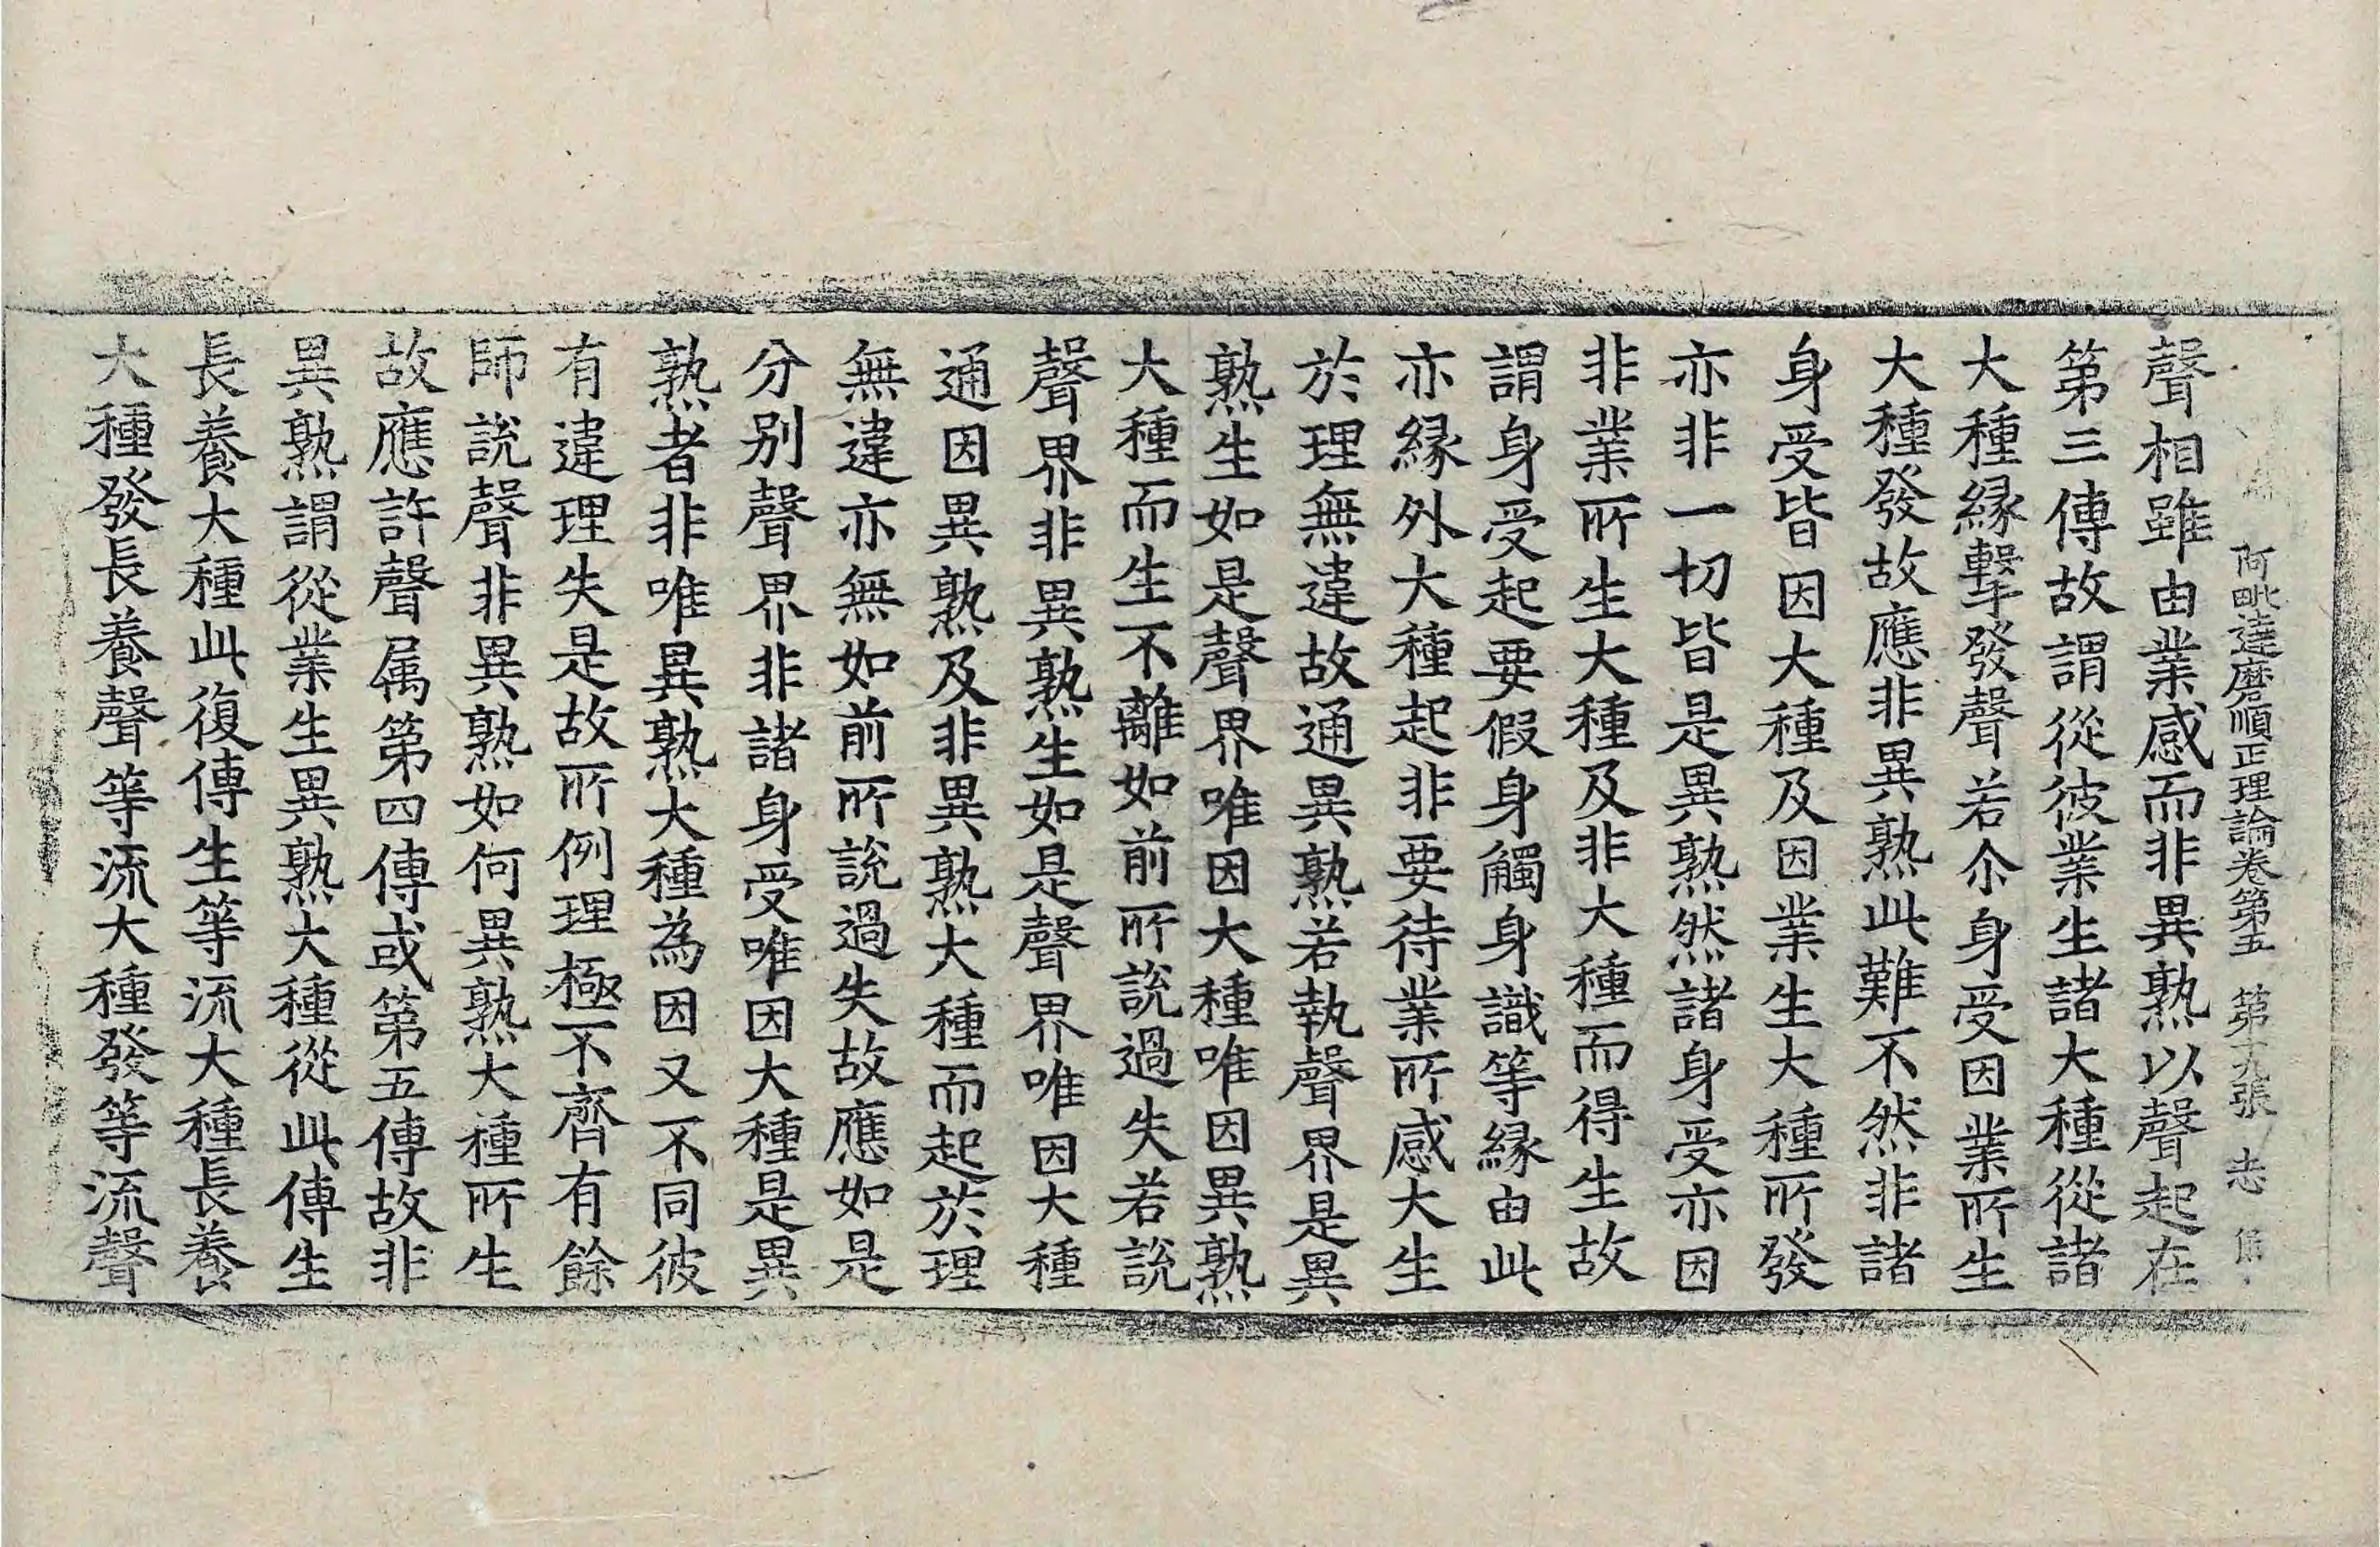 阿毗達磨順正理論卷第五 第十九張 志
聲相雖由業感而非異熟以聲起在
第三傳故謂從彼業生諸大種從諸
大種緣擊發聲若尒身受因業所生
大種發故應非異熟此難不然非諸
身受皆因大種及因業生大種所發
亦非一切皆是異熟然諸身受亦因
非業所生大種及非大種而得生故
謂身受起要假身觸身識等緣由此
亦緣外大種起非要待業所感大生
於理無違故通異熟若執聲界是異
熟生如是聲界唯因大種唯因異熟
大種而生不離如前所說過失若說
聲界非異熟生如是聲界唯因大種
通因異熟及非異熟大種而起於理
無違亦無如前所說過失故應如是
分別聲界非諸身受唯因大種是異
熟者非唯異熟大種為因又不同彼
有違理失是故所例理極不齊有餘
師說聲非異熟如何異熟大種所生
故應許聲属第四傳或第五傳故非
異熟謂從業生異熟大種從此傳生
長養大種此復傳生等流大種長養
大種發長養聲等流大種發等流聲